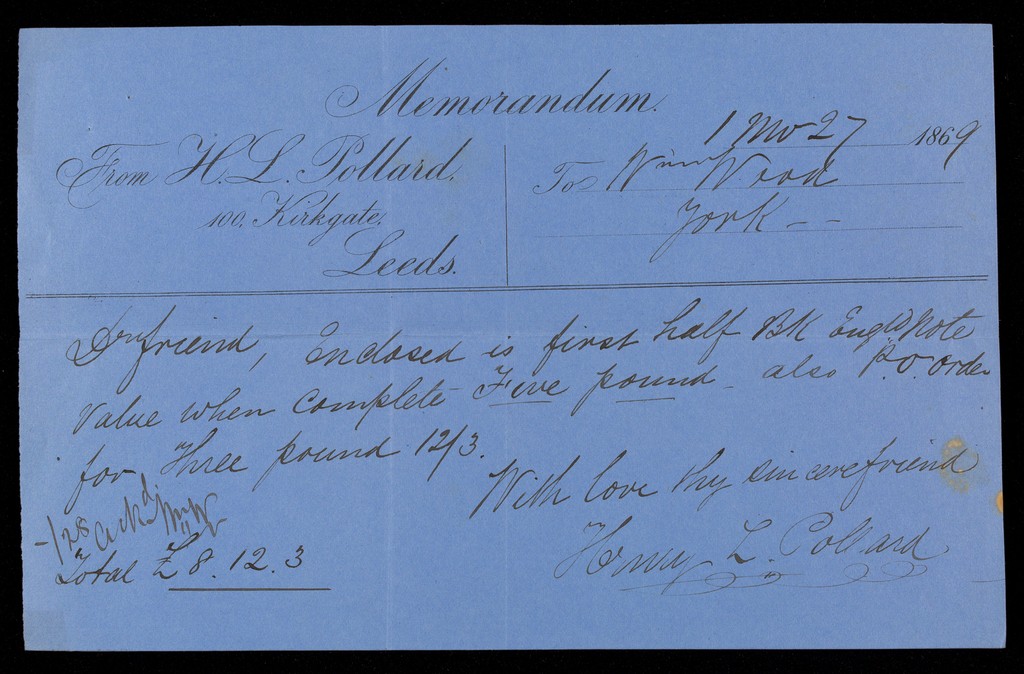 Memorandum.
1 Mo 27 1869
From H. L. Pollard.
100, Kirkgate,
Leeds.
To Wm Wood
York - -
Dr friend, Enclosed is first half BK Engld Note
Value when complete Five pound - also P.O. order
for Three pound 12/3.
With love thy sincere friend
Henry L. Pollard
-1/28 ackd WmW
Total £8.12.3